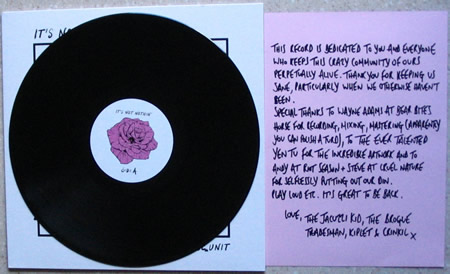 IT'S N
IT'S NOT NOTHIN'
SIDE A
UNIT
THIS RECORD IS DEDICATED TO YOU AND EVERYONE
WHO KEEPS THIS CRAZY COMMUNITY OF OURS
PERPETUALLY ALIVE. THANK YOU FOR KEEPING US
SANE, PARTICULARLY WHEN WE OTHERWISE HAVEN'T
BEEN.
SPECIAL THANKS TO WAYNE ADAMS AT BEAR BITES
HORSE FOR RECORDING, MIXING, MASTERING (APPARENTLY
YOU CAN POLISH A TURD), TO THE EVER TALENTED
YEN TU FOR THE INCREDIBLE ARTWORK AND TO
ANDY AT RIOT SEASON + STEVE AT CRUEL NATURE
FOR SELFLESSLY PUTTING OUT OUR DIN.
PLAY LOUD ETC. IT'S GREAT TO BE BACK.
LOVE, THE JACUZZI KID, THE BROGUE
TRADESMAN, KIPLET & CRINKIL X